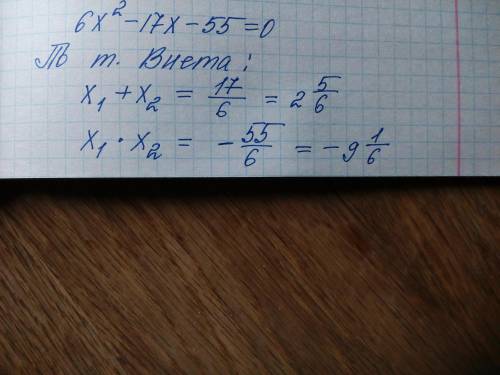 6x² - 17x - 55 = 0
По т. Виета:
x₁ + x₂ = 17/6 = 2 5/6
x₁ · x₂ = - 55/6 = - 9 1/6